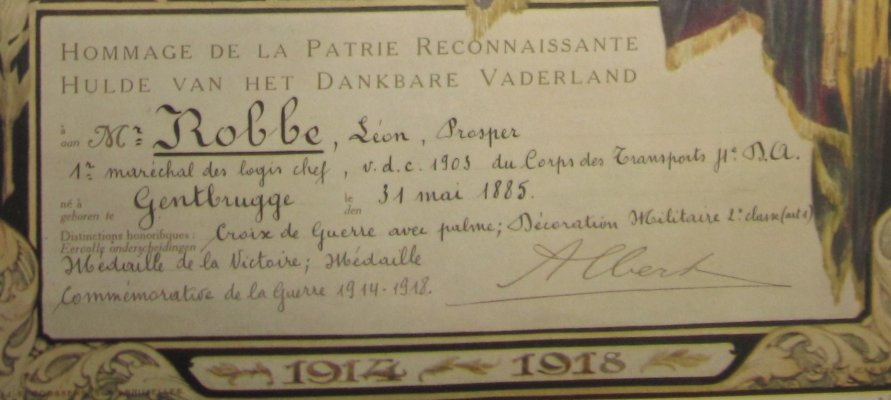 HOMMAGE DE LA PATRIE RECONNAISSANTE
HULDE VAN HET DANKBARE VADERLAND
à aan Mr. Robbe, Léon, Prosper
1r maréchal des logis chef, v.d.c. 1903 du Corps des Transports D.A.
né à geboren te Gentbrugge le den 31 mai 1885.
Distinctions honorifiques: Eervolle onderscheidingen Croix de Guerre avec palme; Décoration Militaire 2e classe (art 1)
Médaille de la Victoire; Médaille
Commémorative de la Guerre 1914-1918.
Albert
1914 1918